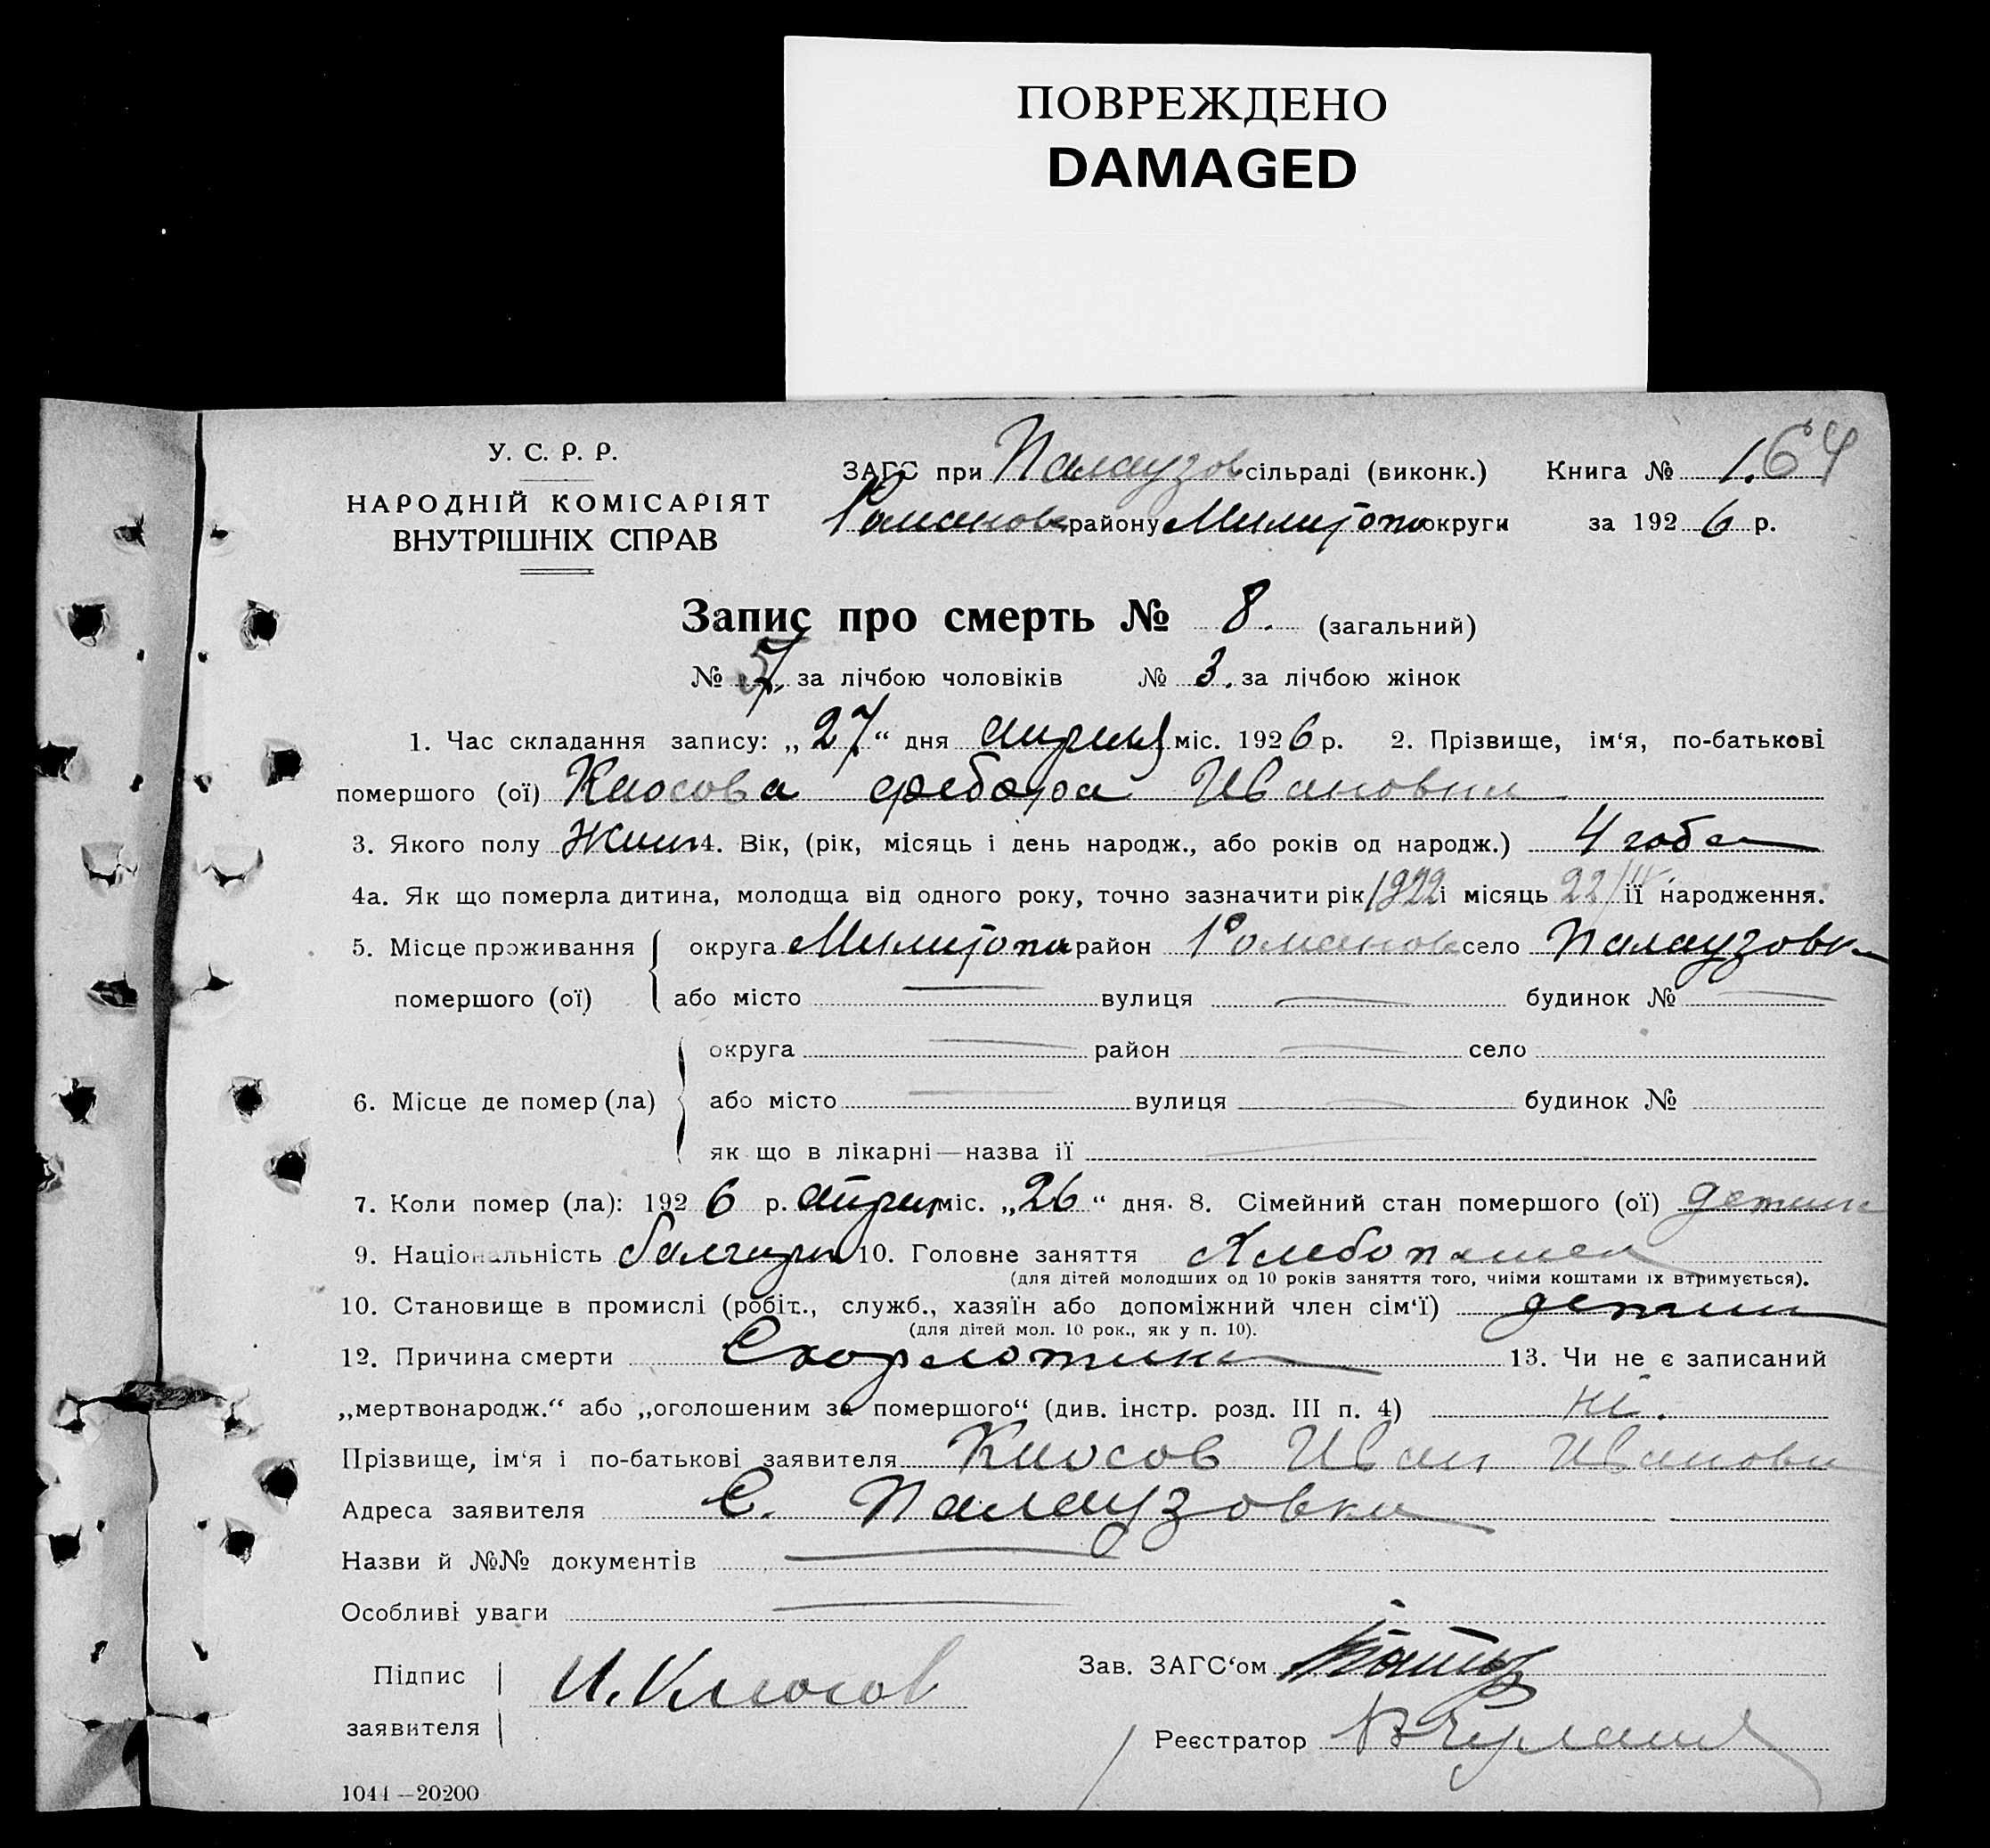 ПОВРЕЖДЕНО
DAMAGED
У. С. Р. Р.
НАРОДНІЙ КОМІСАРІЯТ
ВНУТРІШНІХ СПРАВ
ЗАГС при Палаузов сільраді (виконк.) Книга № 1. 64
Романов району Мелитопо округи за 1926 р.
Запис про смерть № 8. (загальний)
№ 5 за лічбою чоловіків № 3. за лічбою жінок
1. Час складання запису: „27“ дня апреля міс. 1926 р. 2. Прізвище, ім‘я, по-батькові
помершого (ої) Киосова Федора Ивановна
3. Якого полу Жин 4. Вік, (рік, місяць і день народж., або років од народж.) 4 года
4а. Як що померла дитина, молодша від одного року, точно зазначити рік 1922 і місяць 22/ її народження.
5. Місце проживання помершого (ої) округа Мелитопо район Романов село Палаузовка
або місто — вулиця — будинок № —
6. Місце де помер (ла) округа — район — село
або місто — вулиця — будинок №
як що в лікарні—назва її
7. Коли помер (ла): 1926 р. апрел міс. „26“ дня. 8. Сімейний стан помершого (ої) детин
9. Національність болгари 10. Головне заняття Хлебопашец
(для дітей молодших од 10 років заняття того, чиіми коштами іх втримується).
10. Становище в промислі (робіт., служб., хазяїн або допоміжний член сім‘ї) детин
(для дітей мол. 10 рок., як у п. 10).
12. Причина смерти Скорлотина 13. Чи не є записаний
„мертвонародж.“ або „оголошеним за помершого“ (див. інстр. розд. III п. 4) ні.
Прізвище, ім‘я і по-батькові заявителя Киосов Иван Иванови
Адреса заявителя С. Палаузовка
Назви й №№ документів —
Особливі уваги —
Підпис заявителя И. Киосов
Зав. ЗАГС‘ом
Реєстратор
1044—20200